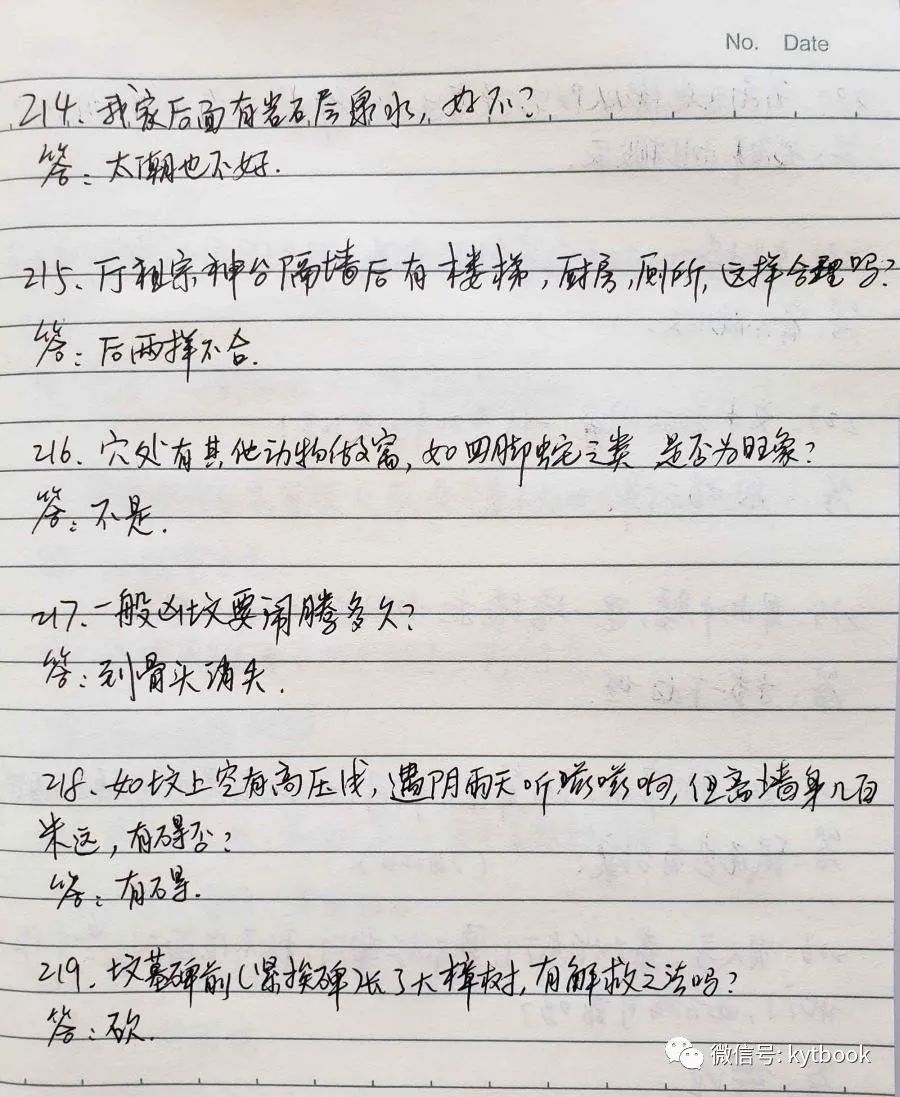 No. Date
214、我家后面有岩石层泉水,好不?
答:太潮也不好.
215、厅祖宗神台隔墙后有楼梯,厨房,厕所,这样合理吗?
答:后两样不合.
216、穴处有其他动物做窝,如四脚蛇之类 是否为旺象?
答:不是.
217、一般凶坟要闹腾多久?
答:到骨头消失.
218、如坟上空有高压线,遇阴雨天听嗞嗞响,但离墙身几百
米远,有碍否?
答:有碍.
219、坟墓碑前(紧挨碑)长了大樟树,有解救之法吗?
答:砍.
微信号: kytbook